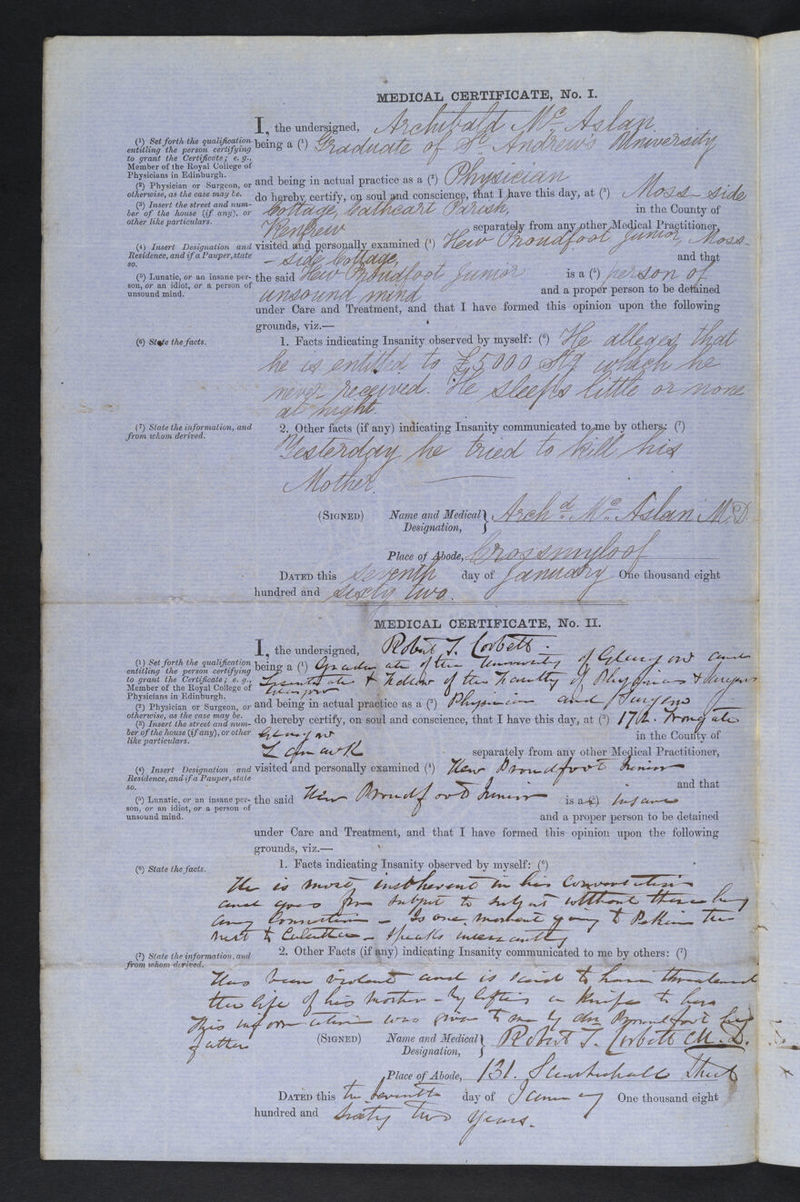 MEDICAL CERTIFICATE, No. I.
I, the undersigned, Archibald Mc Aslan
(1) Set forth the qualification entitling the person certifying to grant the Certificate; e. g., Member of the Royal College of Physicians in Edinburgh.
being a (1) Graduate of St. Andrews University
(2) Physician or Surgeon, or otherwise, as the case may be.
and being in actual practice as a (2) Physician
(3) Insert the street and number of the house (if any), or other like particulars.
do hereby certify, on soul and conscience, that I have this day, at (3) Moss-side
Cottage, Cathcart Parish, in the County of
Renfrew separately from any other Medical Practitioner,
(4) Insert Designation and Residence, and if a Pauper, state so.
visited and personally examined (4) Hew Proudfoot Junior, Moss-
-side Cottage, and that
(5) Lunatic, or an insane person, or an idiot, or a person of unsound mind.
the said Hew Proudfoot Junior is a (5) person of
unsound mind and a proper person to be detained
under Care and Treatment, and that I have formed this opinion upon the following
grounds, viz.—
(6) State the facts.
1. Facts indicating Insanity observed by myself: (6) He alleges that
he is entitled to £5000 Stg which he
never received. He sleeps little or none
at night
(7) State the information, and from whom derived.
2. Other facts (if any) indicating Insanity communicated to me by others: (7)
Yesterday he tried to kill his
Mother.
(SIGNED) Name and Medical Designation, Archd. Mc. Aslan M.D.
Place of Abode, Crossmyloof
DATED this seventh day of January One thousand eight
hundred and sixty two.
MEDICAL CERTIFICATE, No. II.
I, the undersigned, Robert T. Corbett
(1) Set forth the qualification entitling the person certifying to grant the Certificate; e. g., Member of the Royal College of Physicians in Edinburgh.
being a (1) Graduate of the University of Glasgow and
Licentiate & Fellow of the Faculty of Physicians & Surgeons
Glasgow
(2) Physician or Surgeon, or otherwise, as the case may be.
and being in actual practice as a (2) Physician and Surgeon
(3) Insert the street and number of the house (if any), or other like particulars.
do hereby certify, on soul and conscience, that I have this day, at (3) Trongate
Glasgow in the County of
Lanark separately from any other Medical Practitioner,
(4) Insert Designation and Residence, and if a Pauper, state so.
visited and personally examined (4) Hew Proudfoot Junior
and that
(5) Lunatic, or an insane person, or an idiot, or a person of unsound mind.
the said Hew Proudfoot Junior is a (5) insane
and a proper person to be detained
under Care and Treatment, and that I have formed this opinion upon the following
grounds, viz.—
(6) State the facts.
1. Facts indicating Insanity observed by myself: (6)
He is most incoherent in his conversation
and goes from subject to subject without there being
any connection - Is one moment going to Pekin the
next to Calcutta - speaks incessantly
(7) State the information, and from whom derived.
2. Other Facts (if any) indicating Insanity communicated to me by others: (7)
Has been violent and is said to have threatened
the life of his mother - by lifting a knife to her
This information was given to me by Proudfoot his
father
(SIGNED) Name and Medical Designation, Robert T. Corbett M.D.
Place of Abode, 131. Street
DATED this the seventh day of January One thousand eight
hundred and sixty two years.